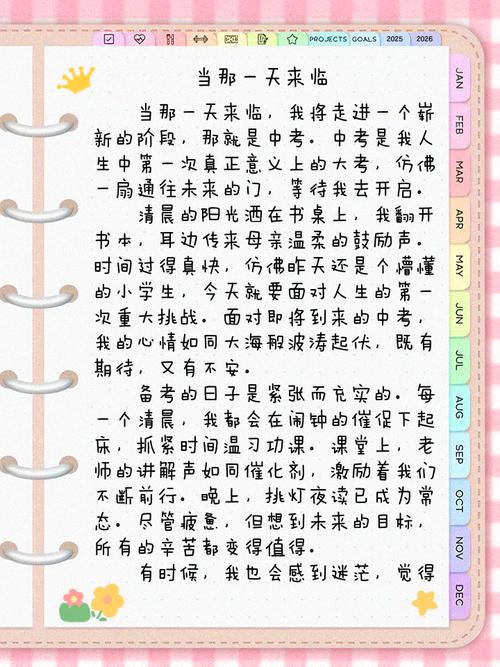 PROJECTS GOALS 2025 2026
当那一天来临
当那一天来临，我将走进一个崭
新的阶段，那就是中考。中考是我人
生中第一次真正意义上的大考，仿佛
一扇通往未来的门，等待我去开启。
清晨的阳光洒在书桌上，我翻开
书本，耳边传来母亲温柔的鼓励声。
时间过得真快，仿佛昨天还是个懵懂
的小学生，今天就要面对人生的第一
次重大挑战。面对即将到来的中考，
我的心情如同大海般波涛起伏，既有
期待，又有不安。
备考的日子是紧张而充实的。每
一个清晨，我都会在闹钟的催促下起
床，抓紧时间温习功课。课堂上，老
师的讲解声如同催化剂，激励着我们
不断前行。晚上，挑灯夜读已成为常
态。尽管疲惫，但想到未来的目标，
所有的辛苦都变得值得。
有时候，我也会感到迷茫，觉得
JAN
FEB
MAR
APR
MAY
JUN
JUL
AUG
SEP
OCT
NOV
DEC